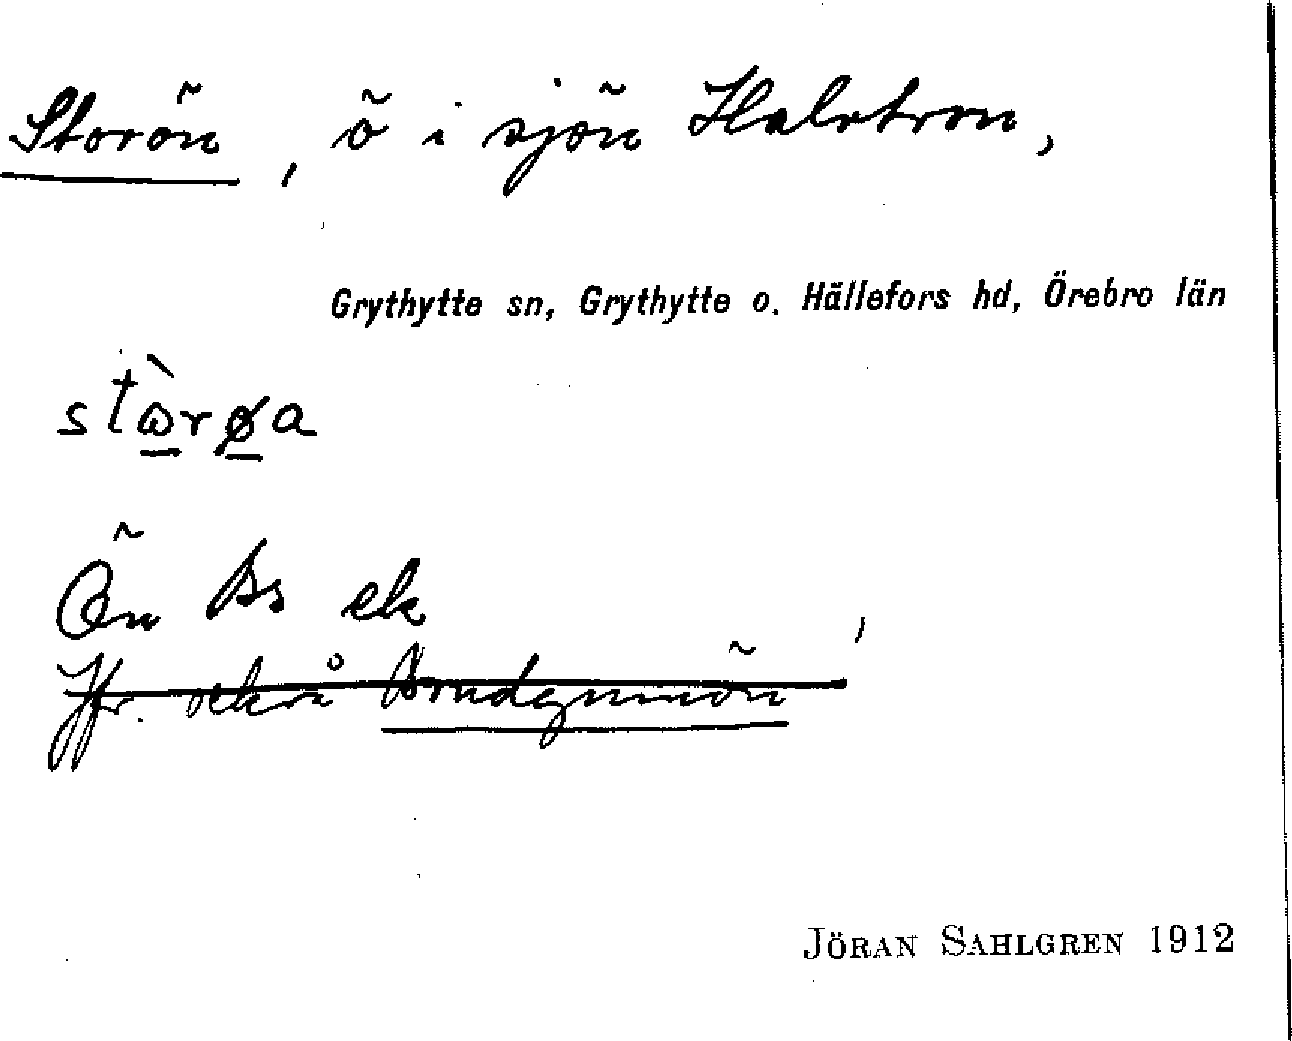 Storön, ö i sjön Halvtron,
Grythytte sn, Grythytte o. Hällefors hd, Örebro län
stɷ̀rø̱a
Ön Bs ek
Jfr. också Brudgumön
JÖRAN SAHLGREN 1912